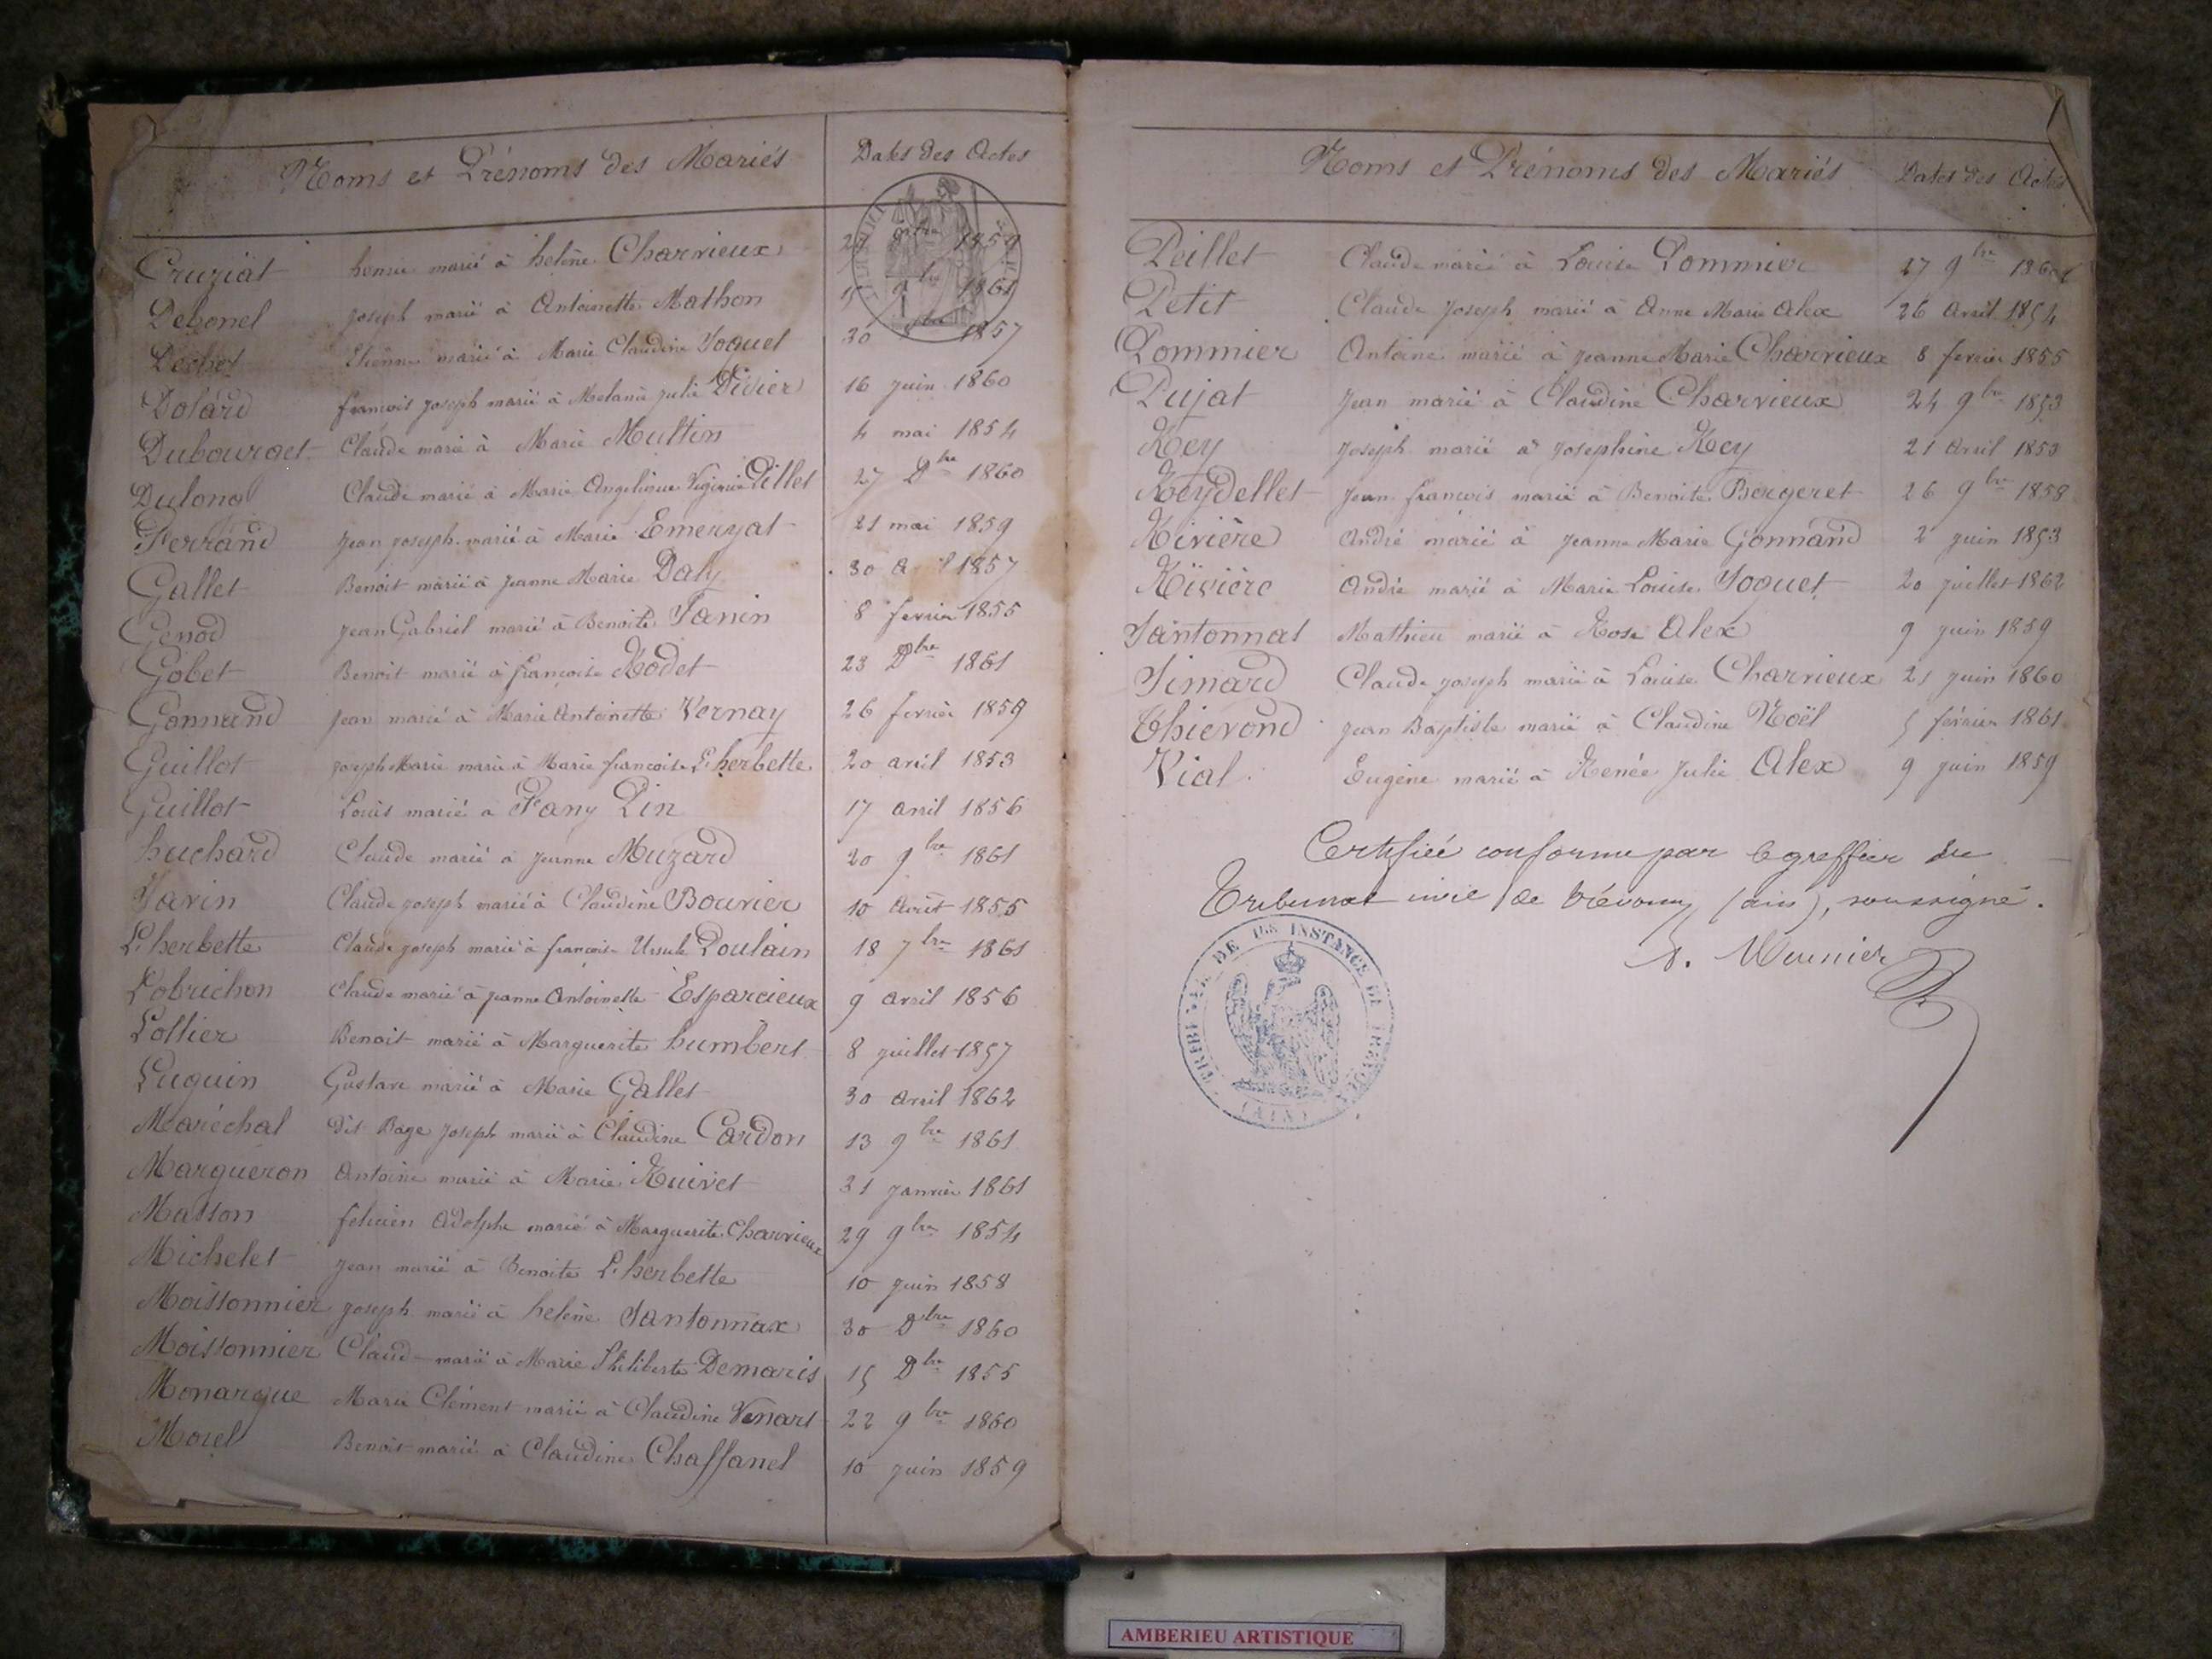 Noms et Prénoms des Mariés Dates des Actes
Cruziat henrie marié à helène Charvieux 1859
Debonel joseph marié à Antoinette Mathon 15 9bre 1861
Dechet Etienne marié à Marie Claudine Joquet 30 1857
Dolard françois joseph marié à Melanie julie Divier 16 juin 1860
Dubourget Claude marié à Marie Multin 4 mai 1854
Dulong Claude marié à Marie Angelique Virginie Pillet 27 Dbre 1860
Ferrand jean joseph marié à Marie Emeryat 21 mai 1859
Gallet Benoit marié à jeanne Marie Daly 30 1857
Genod jean Gabriel marié à Benoite Janin 8 fevrier 1855
Gobet Benoit marié à françoise Rodet 23 Dbre 1861
Gonnand jean marié à Marie Antoinette Vernay 26 fevrier 1859
Guillot joseph Marie marié à Marie francoise L'herbette 20 avril 1853
Guillot Louis marié à Fany Pin 17 avril 1856
huchard Claude marié à jeanne Muzard 20 9bre 1861
Javin Claude joseph marié à Claudine Bouvier 10 Août 1855
L'herbette Claude joseph marié à françoise Ursule Poulain 18 7bre 1861
Lobrichon Claude marié à jeanne Antoinette Esparcieux 9 avril 1856
Lollier Benoit marié à Marguerite humbert 8 juillet 1857
Luguin Gustave marié à Marie Gallet 30 avril 1862
Maréchal dit Bage joseph marié à Claudine Cardon 13 9bre 1861
Margueron Antoine marié à Marie Ruivet 31 janvier 1861
Masson felicien Adolphe marié à Marguerite Charvieux 29 9bre 1854
Michelet jean marié à Benoite L'herbette 10 juin 1858
Moissonnier joseph marié à helène Santonnax 30 Dbre 1860
Moissonnier Claude marié à Marie Philiberte Demaris 15 Dbre 1855
Monarque Marie Clément marié à Claudine Venart 22 9bre 1860
Morel Benoit marié à Claudine Chaffanel 10 juin 1859
Noms et Prénoms des Mariés Dates des Actes
Peillet Claude marié à Louise Pommier 27 9bre
Petit Claude joseph marié à Anne Marie Alex 26 avril 1854
Pommier Antoine marié à jeanne Marie Charvieux 8 fevrier 1855
Pujat jean marié à Claudine Charvieux 24 9bre 1853
Rey joseph marié à josephine Rey 21 avril 1853
Reydellet jean françois marié à Benoite Bergeret 26 9bre 1858
Rivière André marié à jeanne Marie Gonnand 2 juin 1853
Rivière André marié à Marie Louise Joquet 20 juillet 1862
Santonnat Mathieu marié à Rose Alex 9 juin 1859
Simard Claude joseph marié à Louise Charvieux 21 juin 1860
Thievond jean Baptiste marié à Claudine Noël 5 février 1861
Vial Eugène marié à Renée julie Alex 9 juin 1859
Certifiée conforme par le greffier du
Tribunal civil de Trévoux (ain), soussigné.
Meunier
TRIBUNAL DE 1ER INSTANCE DE TREVOUX
(AIN)
AMBERIEU ARTISTIQUE